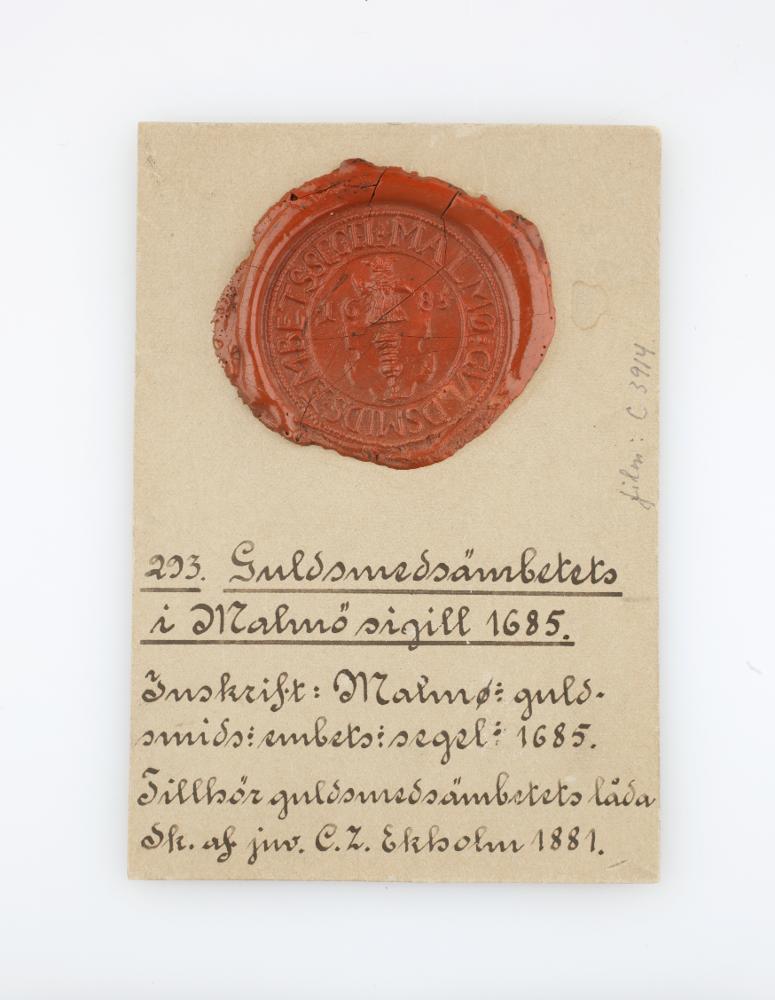 MALMØ: GULDSMIDS: EMBETS SEGEL:
16 85
293. Guldsmedsämbetets
i Malmö sigill 1685.
Inskrift: Malmø: guld-
smids: embets: segel: 1685.
Tillhör guldsmedsämbetets låda
Sk. af juv. C. Z. Ekholm 1881.
film: C 3914